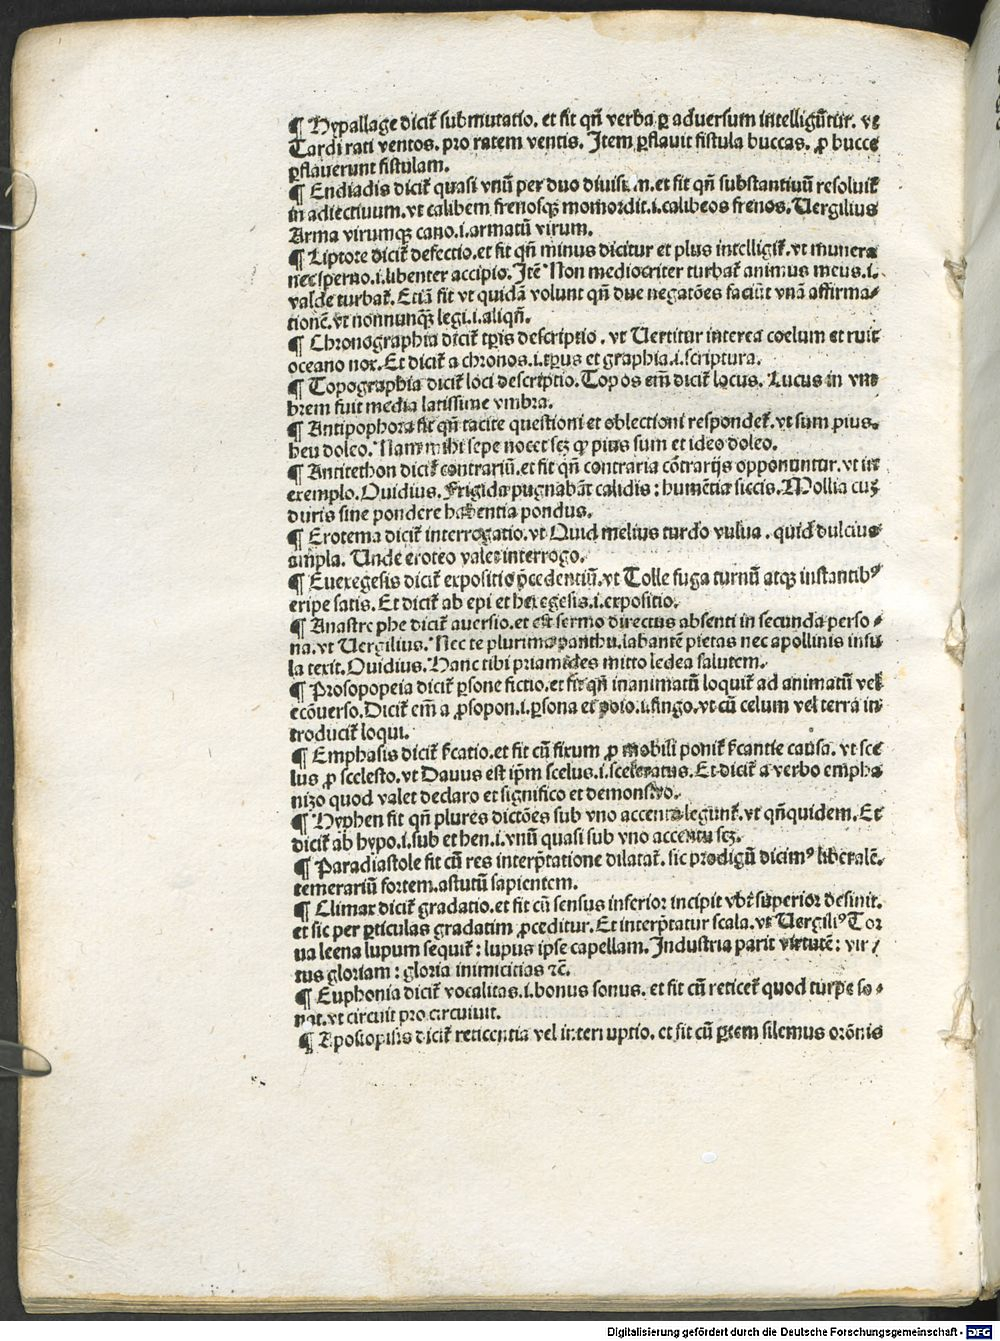 ¶ Hypallage dicit᷑ submutatio. et fit qn̄ verba ꝑ aduersum intelligūtur. vt
Tardi rati ventos. pro ratem ventis. Item ꝑflauit fistula buccas. ꝓ bucce
ꝑflauerunt fistulam.
¶ Endiadis dicit᷑ quasi vnū per duo diuisum. et fit qn̄ substantiuū resoluit᷑
in adiectiuum. vt calibem frenosqꝫ momordit .i. calibeos frenos. Uergilius
Arma virumqꝫ cano .i. armatū virum.
¶ Liptote dicit᷑ defectio. et fit qn̄ minus dicitur et plus intelligit᷑. vt munera
nec sperno .i. libenter accipio. Itē Non mediocriter turbat᷑ animus meus .i.
valde turbat᷑. Etiā fit vt quidā volunt qn̄ due negatōes faciūt vnā affirma⸗
tionē. vt nonnunqꝫ legi .i. aliqn̄.
¶ Chronographia dicit᷑ tꝑis descriptio . vt Uertitur interea coelum et ruit
oceano nox. Et dicit᷑ a chronos .i. tꝑus et graphia .i. scriptura.
¶ Topographia dicit᷑ loci descriptio. Topos em̄ dicit᷑ locus. Lucus in vr⸗
brem fuit media latissime vmbra.
¶ Antipophora fit qn̄ tacite questioni et oblectioni respondet᷑. vt sum pius.
heu doleo. Nam mihi sepe nocet sꝫ ꝙ pius sum et ideo doleo.
¶ Antitethon dicit᷑ contrariū. et fit qn̄ contraria cōtrarijs opponuntur. vt in
exemplo. Ouidius. Frigida pugnabāt calidis : humētia siccis. Mollia cuꝫ
duris sine pondere habentia pondus.
¶ Erotema dicit᷑ interrogatio. vt Quid melius turdo vulua . quid dulcius
ampla. Unde eroteo valet interrogo.
¶ Euexegesis dicit᷑ expositio p̄cedentiū. vt Tolle fuga turnū atqꝫ instantibꝰ
eripe fatis. Et dicit᷑ ab epi et hexegesis .i. expositio.
¶ Anastrophe dicit᷑ auersio. et est sermo directus absenti in secunda perso⸗
na. vt Uergilius. Nec te plurima panthu. labantē pietas nec apollinis infu
la texit. Ouidius. Hanc tibi priamides mitto ledea salutem.
¶ Prosopopeia dicit᷑ ꝑsone fictio. et fit qn̄ inanimatū loquit᷑ ad animatū vel
ecōuerso. Dicit᷑ em̄ a ꝓsopon .i. ꝑsona et poio .i. fingo. vt cū celum vel terra in
troducit᷑ loqui.
¶ Emphasis dicit᷑ f᷑catio. et fit cū fixum ꝓ mobili ponit᷑ f᷑cantie causa. vt sce
lus ꝓ scelesto. vt Dauus est ip̄m scelus .i. sceleratus. Et dicit᷑ a verbo empha
nizo quod valet declaro et significo et demonstro.
¶ Hyphen fit qn̄ plures dictōes sub vno accentu legunt᷑. vt qn̄quidem. Et
dicit᷑ ab hypo .i. sub et hen .i. vnū quasi sub vno accentu sꝫ.
¶ Paradiastole fit cū res interp̄tatione dilatat᷑. sic prodigū dicimꝰ liberalē.
temerariū fortem. astutū sapientem.
¶ Climax dicit᷑ gradatio. et fit cū sensus inferior incipit vbi superior desinit.
et sic per ꝑticulas gradatim ꝓceditur. Et interp̄tatur scala. vt Uergiliꝰ Tor
ua leena lupum sequit᷑ : lupus ipse capellam. Industria parit virtutē : vir /
tus gloriam : gloria inimicitias ⁊c̄.
¶ Euphonia dicit᷑ vocalitas .i. bonus sonus. et fit cū reticet᷑ quod turpe so⸗
nat. vt circuit pro circuiuit.
¶ Aposiopisis dicit᷑ reticentia vel interruptio. et fit cū ꝑtem silemus orōnis
Digitalisierung gefördert durch die Deutsche Forschungsgemeinschaft - DFG